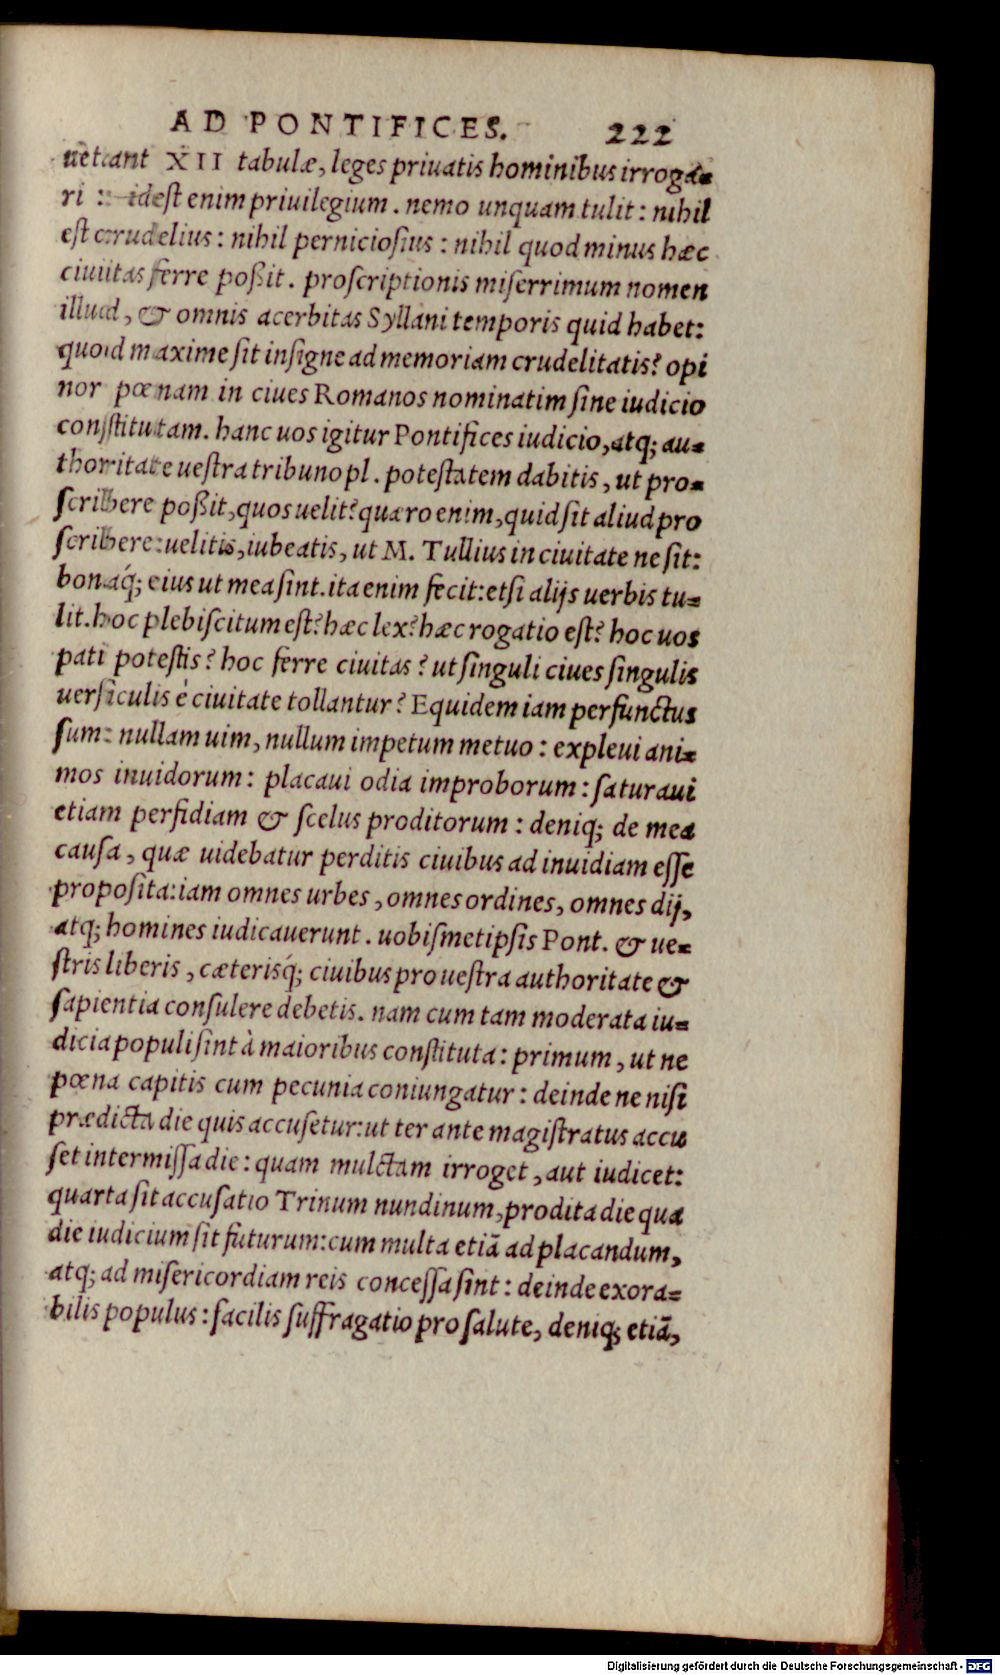 AD PONTIFICES. 222
uetant XII tabulæ, leges priuatis hominibus irroga=
ri : idest enim priuilegium. nemo unquam tulit: nihil
est crudelius: nihil perniciosius: nihil quod minus hæc
ciuitas ferre poßit. proscriptionis miserrimum nomen
illud, & omnis acerbitas Syllani temporis quid habet:
quod maxime sit insigne ad memoriam crudelitatis? opi
nor pœnam in ciues Romanos nominatim sine iudicio
constitutam. hanc uos igitur Pontifices iudicio, atq; au=
thoritate uestra tribuno pl. potestatem dabitis, ut pro=
scribere poßit, quos uelit? quæro enim, quid sit aliud pro
scribere: uelitis, iubeatis, ut M. Tullius in ciuitate ne sit:
bonaq́; eius ut mea sint. ita enim fecit: etsi alijs uerbis tu=
lit. hoc plebiscitum est? hæc lex? hæc rogatio est? hoc uos
pati potestis? hoc ferre ciuitas? ut singuli ciues singulis
uersiculis è ciuitate tollantur? Equidem iam perfunctus
sum: nullam uim, nullum impetum metuo: expleui ani=
mos inuidorum: placaui odia improborum: saturaui
etiam perfidiam & scelus proditorum: deniq; de mea
causa, quæ uidebatur perditis ciuibus ad inuidiam esse
proposita: iam omnes urbes, omnes ordines, omnes dij,
atq; homines iudicauerunt. uobismetipsis Pont. & ue=
stris liberis, cæterisq́; ciuibus pro uestra authoritate &
sapientia consulere debetis. nam cum tam moderata iu=
dicia populi sint à maioribus constituta: primum, ut ne
pœna capitis cum pecunia coniungatur: deinde ne nisi
prædicta die quis accusetur: ut ter ante magistratus accu
set intermissa die: quam mulctam irroget, aut iudicet:
quarta sit accusatio Trinum nundinum, prodita die qua
die iudicium sit futurum: cum multa etiã ad placandum,
atq; ad misericordiam reis concessa sint: deinde exora=
bilis populus: facilis suffragatio pro salute, deniq; etiã,
Digitalisierung gefördert durch die Deutsche Forschungsgemeinschaft - DFG